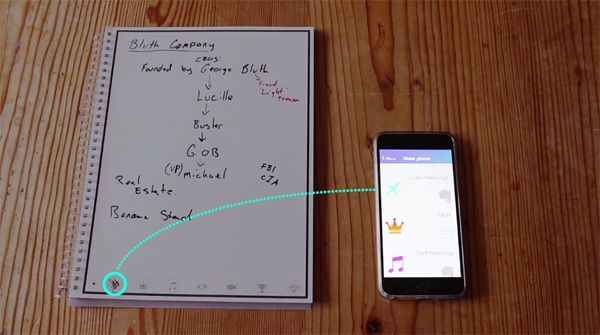 Bluth Company
CEOs:
Founded by George Bluth
Fraud
"Light"
Treason
Lucille
Buster
G.O.B
(VP) Michael
FBI
CIA
Real
Estate.
Banana Stand
Note places
Client Meetings
Ideas
Staff Meetings